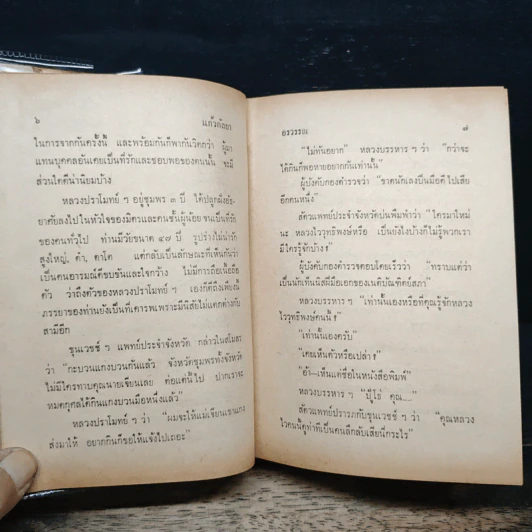 ๖ แก้วกัลยา
ในการจากกันครั้งนี้ และพร้อมกันก็พากันวิตกว่า ผู้มา
แทนบุคคลอันเคยเป็นที่รักและชอบพอของคนนั้น จะมี
ส่วนใดดีน่านิยมบ้าง
หลวงปราโมทย์ ฯ อยู่ชุมพร ๓ ปี ได้ปลูกฝังอัธ-
ยาศัยลงไปในหัวใจของมิตรและคนชั้นผู้น้อย จนเป็นที่รัก
ของคนทั่วไป ท่านมีวัยขนาด ๔๗ ปี รูปร่างไม่น่ารัก
สูงใหญ่, ดำ, ตาโต แต่กลับเป็นลักษณะที่เห็นกันว่า
เป็นคนอารมณ์ดีขบขันและใจกว้าง ไม่มีการถือเนื้อถือ
ตัว ว่าถึงตัวของหลวงปราโมทย์ ฯ เองก็ดีถึงเพียงนี้
ภรรยาของท่านยังเป็นที่เคารพเพราะมีนิสัยไม่แตกต่างกับ
สามีอีก
ขุนเวชช์ ฯ แพทย์ประจำจังหวัด กล่าวในสโมสร
ว่า “กะบวนแกงบวนกันแล้ว จังหวัดชุมพรทั้งจังหวัด
ไม่มีใครทาบคุณนายเจียนเลย ต่อแต่นี้ไป ปากเราจะ
หมดกุศลได้กินแกงบวนมือหนึ่งแล้ว”
หลวงปราโมทย์ ฯ ว่า “ผมจะให้แม่เจียนเขาแกง
ส่งมาให้ อยากกินก็ขอให้แจ้งไปเถอะ”
อรวรรณ ๗
“ไม่ทันอยาก” หลวงบรรหาร ฯ ว่า “กว่าจะ
ได้กินก็พอหายอยากกันเท่านั้น”
ผู้บังคับกองตำรวจว่า “ขาดนักเลงปืนมือดีไปเสีย
อีกคนหนึ่ง”
สัตวแพทย์ประจำจังหวัดบ่นพึมพำว่า “ใครมาใหม่
นะ หลวงไววุฑริพงษ์หรือ เป็นยังไงบ้างก็ไม่รู้พวกเรา
มีใครรู้จักบ้าง”
ผู้บังคับกองตำรวจตอบโดยเร็วว่า “ทราบแต่ว่า
เป็นนักเท็นนิสฝีมือเอกของเนติบัณฑิตย์สภา”
หลวงบรรหาร ฯ “เท่านั้นเองหรือที่คุณรู้จักหลวง
ไววุฑริพงษ์คนนี้”
“เท่านั้นเองครับ”
“เคยเห็นตัวหรือเปล่า”
“อ้า—เห็นแต่ชื่อในหนังสือพิมพ์”
หลวงบรรหาร ฯ “ปู้โธ่ คุณ...”
สัตวแพทย์ปรารภกับขุนเวชช์ ฯ ว่า “คุณหลวง
ไวคนนี้ดูท่าทีเป็นคนลึกลับเสียนี่กะไร”